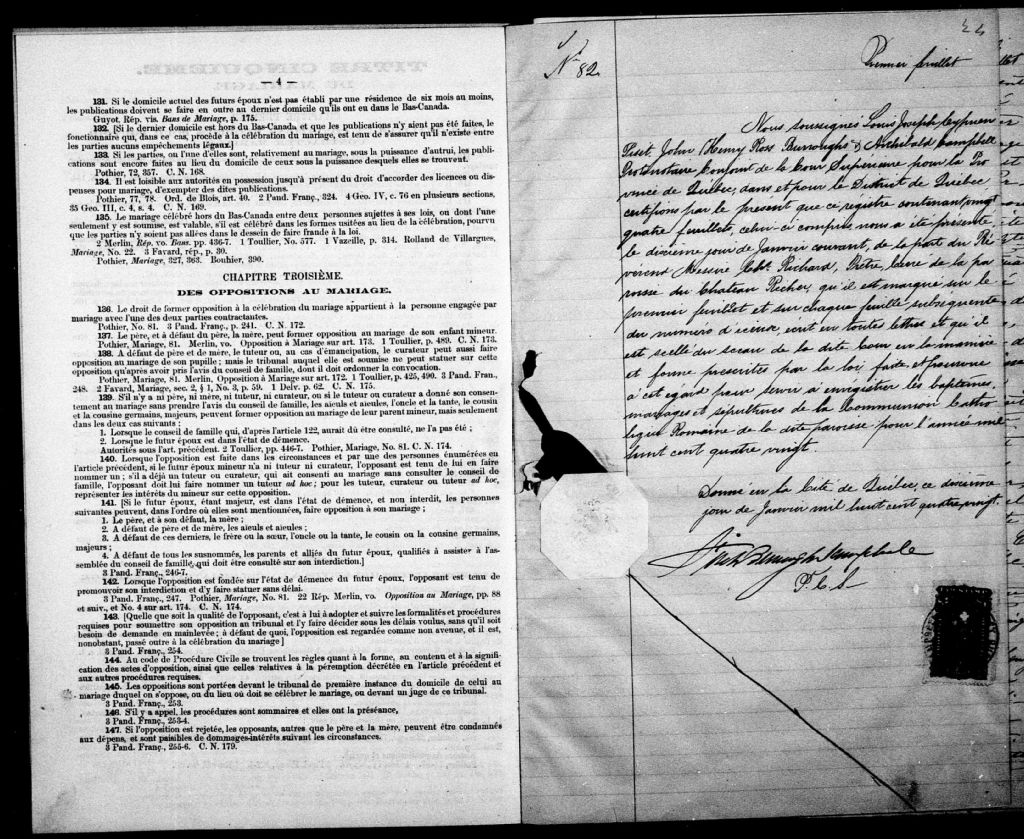 — 4 —
131. Si le domicile actuel des futurs époux n'est pas établi par une résidence de six mois au moins,
les publications doivent se faire en outre au dernier domicile qu'ils ont eu dans le Bas-Canada.
Guyot. Rép. vis. Bans de Mariage, p. 175.
132. [Si le dernier domicile est hors du Bas-Canada et que les publications n'y aient pas été faites, le
fonctionnaire qui, dans ce cas, procède à la célébration du mariage, est tenu de s'assurer qu'il n'existe entre
les parties aucuns empêchements légaux.]
133. Si les parties, ou l'une d'elles sont, relativement au mariage, sous la puissance d'autrui, les publi-
cations sont encore faites au lieu du domicile de ceux sous la puissance desquels elles se trouvent.
Pothier, 72, 357. C. N. 168.
134. Il est loisible aux autorités en possession jusqu'à présent du droit d'accorder des licences ou dis-
penses pour mariage, d'exempter des dites publications.
Pothier, 77, 78. Ord. de Blois, art. 40. 2 Pand. Franç., 324. 4 Geo. IV, c. 76 en plusieurs sections,
35 Geo. III, c. 4, s. 4. C. N. 169.
135. Le mariage célébré hors du Bas-Canada entre deux personnes sujettes à ses lois, ou dont l'une
seulement y est soumise, est valable, s'il est célébré dans les formes usitées au lieu de la célébration, pourvu
que les parties n'y soient pas allées dans le dessein de faire fraude à la loi.
2 Merlin, Rép. vo. Bans. pp. 436-7. 1 Toullier, No. 577. 1 Vazeille, p. 314. Rolland de Villargnes,
Mariage, No. 22. 3 Favard, rép., p. 30.
Pothier, Mariage, 327, 363. Bouhier, 390.
CHAPITRE TROISIÈME.
DES OPPOSITIONS AU MARIAGE.
136. Le droit de former opposition à la célébration du mariage appartient à la personne engagée par
mariage avec l'une des deux parties contractantes.
Pothier, No. 81. 3 Pand. Franç., p. 241. C. N. 172.
137. Le père, et à défaut du père, la mère, peut former opposition au mariage de son enfant mineur.
Pothier, Mariage, 81. Merlin, vo. Opposition à Mariage sur art. 173. 1 Toullier, p. 489. C. N. 173.
138. A défaut de père et de mère, le tuteur ou, au cas d'émancipation, le curateur peut aussi faire
opposition au mariage de son pupille; mais le tribunal auquel elle est soumise ne peut statuer sur cette
opposition qu'après avoir pris l'avis du conseil de famille, dont il doit ordonner la convocation.
Pothier, Mariage, 81. Merlin, Opposition à Mariage sur art. 172. 1 Toullier, p. 425, 490. 3 Pand. Fran.,
248. 2 Favard, Mariage, sec. 2, § 1, No. 3, p. 59. 1 Delv. p. 62. C. N. 175.
139. S'il n'y a ni père, ni mère, ni tuteur, ni curateur, ou si le tuteur ou curateur a donné son consen-
tement au mariage sans prendre l'avis du conseil de famille, les aïeuls et aïeules, l'oncle et la tante, le cousin
et la cousine germains, majeurs, peuvent former opposition au mariage de leur parent mineur, mais seulement
dans les deux cas suivants:
1. Lorsque le conseil de famille qui, d'après l'article 122, aurait dû être consulté, ne l'a pas été;
2. Lorsque le futur époux est dans l'état de démence.
Autorités sous l'art. précédent. 2 Toullier, pp. 446-7. Pothier, Mariage, No. 81. C. N. 174.
140. Lorsque opposition est faite dans les circonstances et par une des personnes énumérées en
l'article précédent, si le futur époux mineur n'a ni tuteur ni curateur, l'opposant est tenu de lui en faire
nommer un; s'il a déjà un tuteur ou curateur, qui ait consenti au mariage sans consulter le conseil de
famille, l'opposant doit lui faire nommer un tuteur ad hoc; pour les tuteur, curateur ou tuteur ad hoc,
représenter les intérêts du mineur sur cette opposition.
141. [Si le futur époux, étant majeur, est dans l'état de démence, et non interdit, les personnes
suivantes peuvent, dans l'ordre où elles sont mentionnées, faire opposition à son mariage;
1. Le père, et à son défaut, la mère;
2. A défaut de père et de mère, les aïeuls et aïeules;
3. A défaut de ces derniers, le frère ou la sœur, l'oncle ou la tante, le cousin ou la cousine germains,
majeurs;
4. A défaut de tous les susnommés, les parents et alliés du futur époux, qualifiés à assister à l'as-
semblée du conseil de famille, qui doit être consulté sur son interdiction.]
3 Pand. Franç., 246-7.
142. Lorsque l'opposition est fondée sur l'état de démence du futur époux, l'opposant est tenu de
promouvoir son interdiction et d'y faire statuer sans délai.
3 Pand. Franç., 247. Pothier, Mariage, No. 81. 22 Rép. Merlin, vo. Opposition au Mariage, pp. 88
et suiv., et No. 4 sur art. 174. C. N. 174.
143. [Quelle que soit la qualité de l'opposant, c'est à lui à adopter et suivre les formalités et procédures
requises pour soumettre son opposition au tribunal et l'y faire décider sous les délais voulus, sans qu'il soit
besoin de demande en mainlevée; à défaut de quoi, l'opposition est regardée comme non avenue, et il est,
nonobstant, passé outre à la célébration du mariage]
3 Pand. Franç., 254.
144. Au code de Procédure Civile se trouvent les règles quant à la forme, au contenu et à la signifi-
cation des actes d'opposition, ainsi que celles relatives à la péremption décrétée en l'article précédent et
aux autres procédures requises.
145. Les oppositions sont portées devant le tribunal de première instance du domicile de celui au
mariage duquel on s'oppose, ou du lieu où doit se célébrer le mariage, ou devant un juge de ce tribunal.
3 Pand. Franç., 253.
146. S'il y a appel, les procédures sont sommaires et elles ont la préséance,
3 Pand. Franç., 253-4.
147. Si l'opposition est rejetée, les opposants, autres que le père et la mère, peuvent être condamnés
aux dépens, et sont paisibles de dommages-intérêts suivant les circonstances.
3 Pand. Franç., 255-6. C. N. 179.
No 82
Premier feuillet
Nous soussignés Louis Joseph Cyprien
Fiset, John Henry Ross Burroughs & Archibald Campbell
Protonotaire Conjoint de la Cour Supérieure pour la Pro
vince de Québec, dans et pour le District de Québec,
certifions par le présent que ce registre contenant vingt
quatre feuillets, celui-ci compris, nous a été présenté
le dixième jour de Janvier courant, de la part du Ré
vérend Messire Richard, Prêtre, Curé de la pa
roisse du Chateau Richer, qu'il est marqué sur le
premier feuillet et sur chaque feuille subséquente
du numéro d'icelui, écrit en toutes lettres et qu'il
est scellé du sceau de la dite Cour en la manière
et forme prescrites par la loi faite et pourvue
à cet égard pour servir à enregistrer les baptêmes,
mariages et sépultures de la Communion Catho
lique Romaine de la dite paroisse pour l'année mil
huit cent quatre vingt.
Donné en la Cité de Québec, ce dixième
jour de Janvier mil huit cent quatre vingt.
Fiset Burroughs Campbell
P. C. S